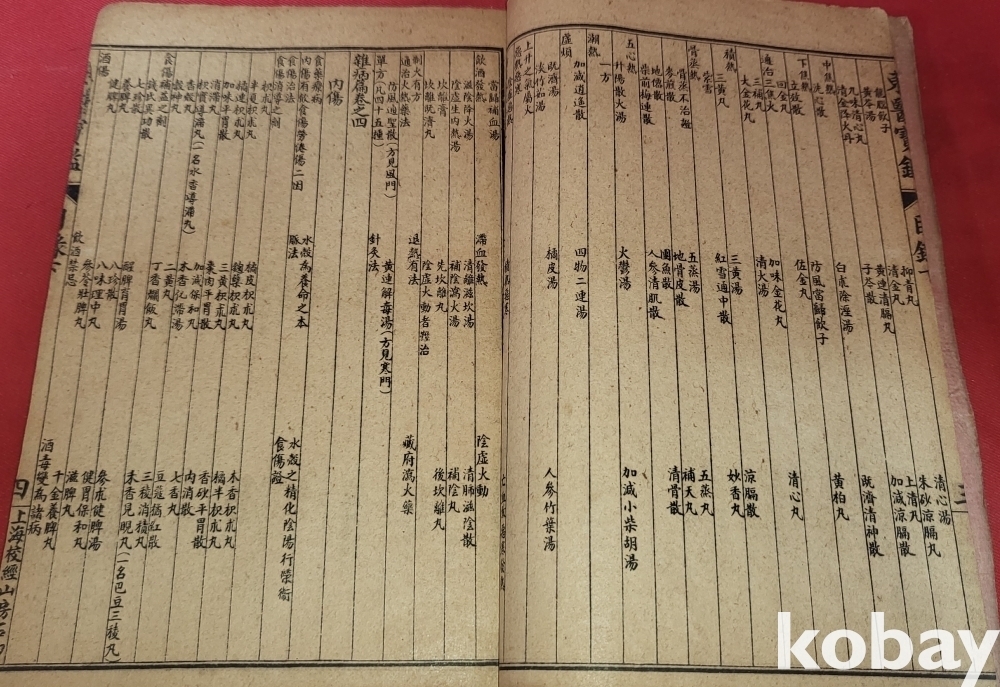 東醫寶鑑 目錄下 三
龍腦飲子 抑青丸 清心湯
黃芩湯 清金丸 朱砂涼膈丸
九味清心丸 黃連清膈丸 上清丸
清金降火丹 子芩散 加減涼膈散
中焦熱 既濟清神散
洗心散 白朮除湿湯 黃柏丸
下焦熱
立效散 防風當歸飲子 清心丸
回金丸 佐金丸
通治三焦火
三補丸 加味金花丸
大金花丸 清大湯 涼膈散
積熱
三黃丸 三黃湯 妙香丸
紫雪 紅雪通中散
骨蒸熱
骨蒸不治證 五蒸湯 五蒸丸
麥煎散 地骨皮散 補天丸
地僊散 團魚散 清骨散
柴前梅連散 人參清肌散
五心熱
升陽散火湯 火鬱湯 加減小柴胡湯
一方
潮熱
加減逍遥散 四物二連湯
虛煩
既濟湯 橘皮湯 人參竹葉湯
淡竹茹湯
上升之氣屬火
當歸補血湯
飲酒發熱 滯血發熱 陰虛火動
滋陰降火湯 清離滋坎湯 清肺滋陰散
陰虛生內熱湯 補陰瀉火湯 補陰丸
坎離膏 先坎離丸 後坎離丸
坎離既濟丸 陰虛火動者難治
制火有方 退熱有法 臟府瀉火藥
通治火熱藥法
防風通聖散(方見風門) 黃連解毒湯(方見寒門)
單方(凡四十五種) 針灸法
雜病篇卷之四
內傷
食藥療病 水穀為養命之本 水穀之精化陰陽行榮衛
內傷有飲食傷勞倦傷二因 脈法 食傷證
食傷治法
食傷消導之劑
枳朮丸 橘皮枳朮丸 木香枳朮丸
半夏枳朮丸 麴蘖枳朮丸 橘半枳朮丸
橘連枳朮丸 三黃枳朮丸 香砂平胃散
加味平胃散 棗肉平胃散 內消散
消滯丸 加減保和丸 七香丸
枳實導滯丸(一名木香導滯丸) 木香化滯湯 豆蔻橘紅散
香殼丸 二黃丸 三稜消積丸
穀神丸 丁香爛飯丸 禾香見晛丸(一名巴豆三稜丸)
食傷補益之劑
錢氏異功散 醒脾育胃湯 千金養脾丸
七珍散 八珍散 滋脾丸
養脾丸 八味理中丸 健胃保和丸
健脾丸 參苓壯脾丸 參朮健脾湯
酒傷 飲酒禁忌 酒毒變為諸病
四 上海校經山房石印
kobay